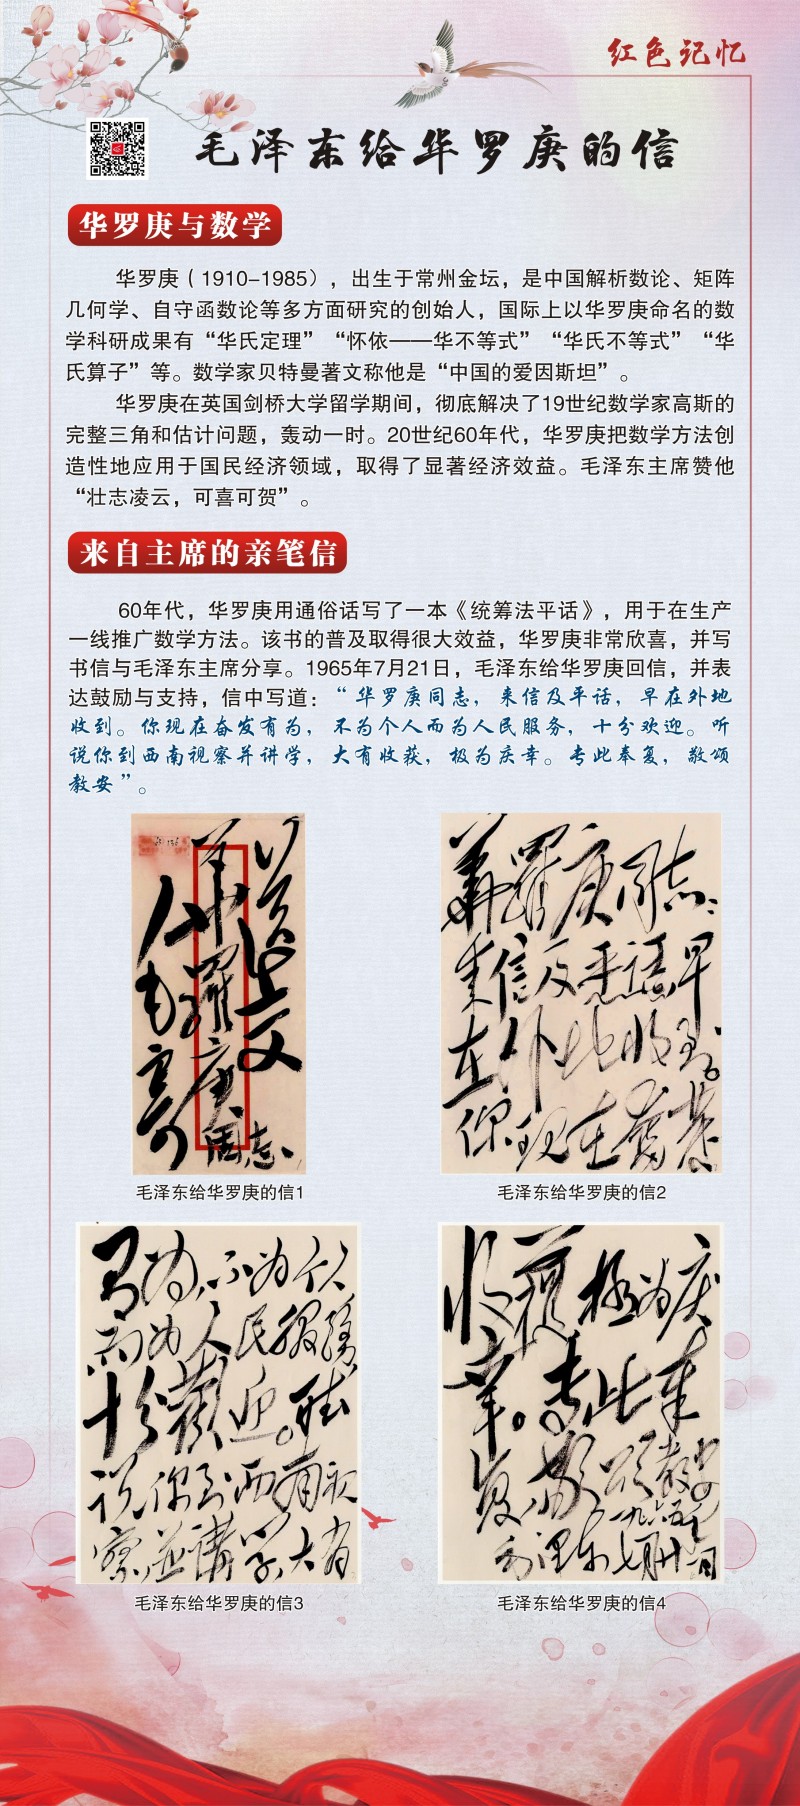 红色记忆
毛泽东给华罗庚的信
华罗庚与数学
华罗庚（1910-1985），出生于常州金坛，是中国解析数论、矩阵
几何学、自守函数论等多方面研究的创始人，国际上以华罗庚命名的数
学科研成果有“华氏定理”“怀依——华不等式”“华氏不等式”“华
氏算子”等。数学家贝特曼著文称他是“中国的爱因斯坦”。
华罗庚在英国剑桥大学留学期间，彻底解决了19世纪数学家高斯的
完整三角和估计问题，轰动一时。20世纪60年代，华罗庚把数学方法创
造性地应用于国民经济领域，取得了显著经济效益。毛泽东主席赞他
“壮志凌云，可喜可贺”。
来自主席的亲笔信
60年代，华罗庚用通俗话写了一本《统筹法平话》，用于在生产
一线推广数学方法。该书的普及取得很大效益，华罗庚非常欣喜，并写
书信与毛泽东主席分享。1965年7月21日，毛泽东给华罗庚回信，并表
达鼓励与支持，信中写道：“华罗庚同志，来信及平话，早在外地
收到。你现在奋发有为，不为个人而为人民服务，十分欢迎。听
说你到西南视察并讲学，大有收获，极为庆幸。专此奉复，敬颂
教安”。
华羅庚同志
毛泽东给华罗庚的信1
華羅庚同志：
来信及平话早
在外地收到。
你现在奮發
毛泽东给华罗庚的信2
有为，不为个人
而为人民服務
十分歡迎。听
说你到西南视
察並講学，大有
毛泽东给华罗庚的信3
收穫，極为庆
幸。专此奉
复，敬颂教安
毛泽东
一九六五年
七月廿一日
毛泽东给华罗庚的信4